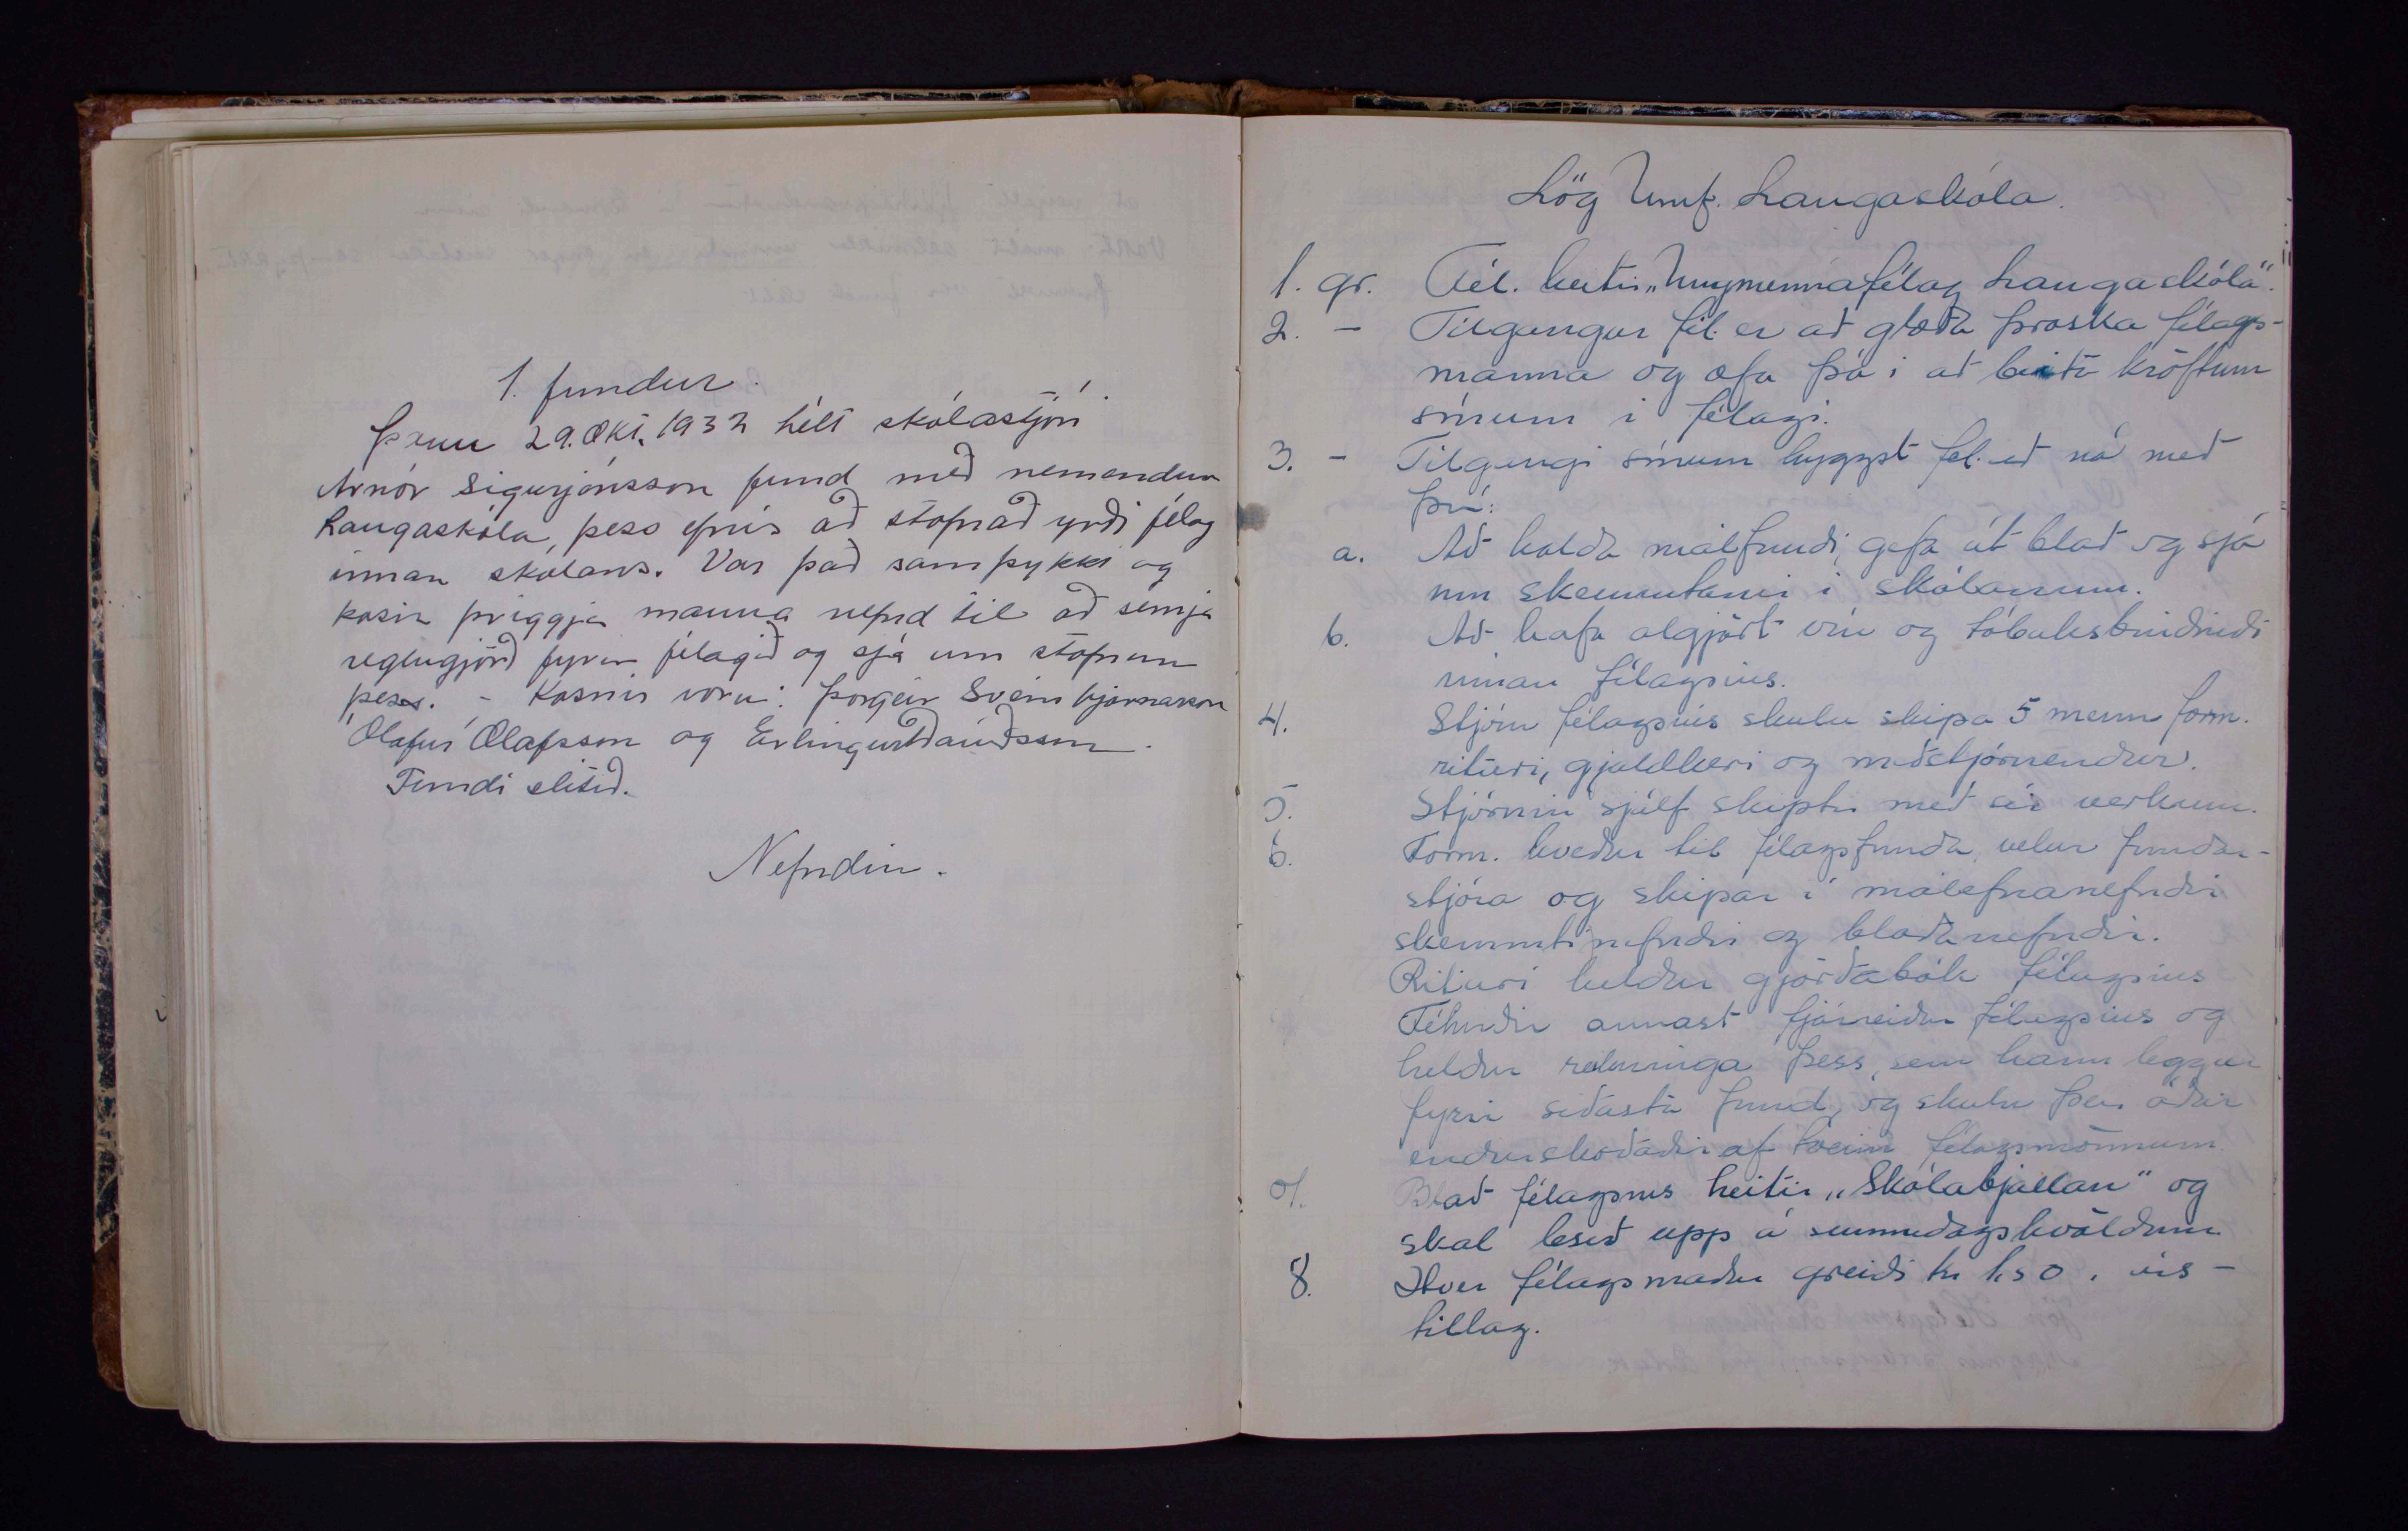 1. fundur.
Þann 29. Okt. 1932 hélt skólastjóri
Arnór Sigurjónsson fund með nemendum
Laugaskóla, þess efnis að stofnað yrði félag
innan skólans. Var það samþykkt og
kosin þriggja manna nefnd til að semja
reglugjörð fyrir félagið og sjá um stofnun
þess. - Kosnir voru: Þorgeir Sveinbjarnarson
Ólafur Ólafsson og Erlingur Davíðsson.
Fundi slitið.
Nefndin.
Lög Umf. Laugaskóla.
1. gr. Fél. heitir „Ungmennafélag Laugaskóla".
2. - Tilgangur fél. er að glæða þroska félags-
manna og æfa þá í að beita kröftum
sínum í félagi.
3. - Tilgangi sínum hyggst fél. að ná með
því:
a. Að halda málfundi, gefa út blað og sjá
um skemmtanir í skólanum.
b. Að hafa algjört vín og tóbaksbindindi
innan félagsins.
4. Stjórn félagsins skulu skipa 5 menn form.
ritari, gjaldkeri og meðstjórnendur.
5. Stjórnin sjálf skiptir með sér verkum.
6. Form. kveður til félagsfunda, velur fundar-
stjóra og skipar í málefnanefndir
skemmtinefndir og blaðanefndir.
Ritari heldur gjörðabók félagsins
Féhirðir annast fjárreiður félagsins og
heldur reikninga þess, sem hann leggur
fyrir síðasta fund, og skulu þeir áður
endurskoðaðir af tveim félagsmönnum
7. Blað félagsins heitir „Skólabjallan" og
skal lesið upp á sunnudagskvöldum
8. Hver félagsmaður greiði kr 1.50 í árs-
tillag.